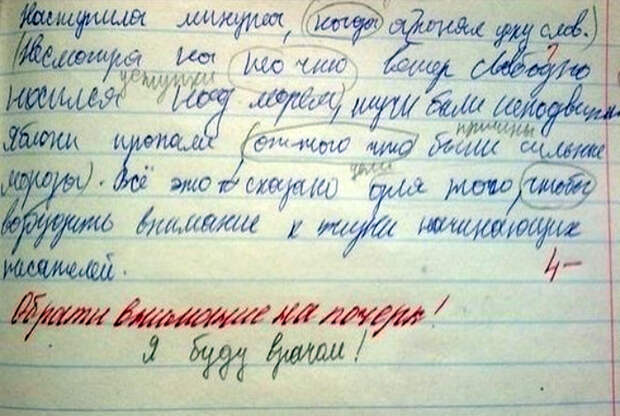 Наступила минута, (когда я понял цену слов.)
(Несмотря на то что ветер свободно
уступки
носился над морем) тучи были неподвижны
причины
Яблони пропали (оттого что были сильные
цели
морозы). Всё это сказано для того, чтобы
возбудить внимание к жизни начинающих
писателей.
4-
Обрати внимание на почерк!
Я буду врачом!